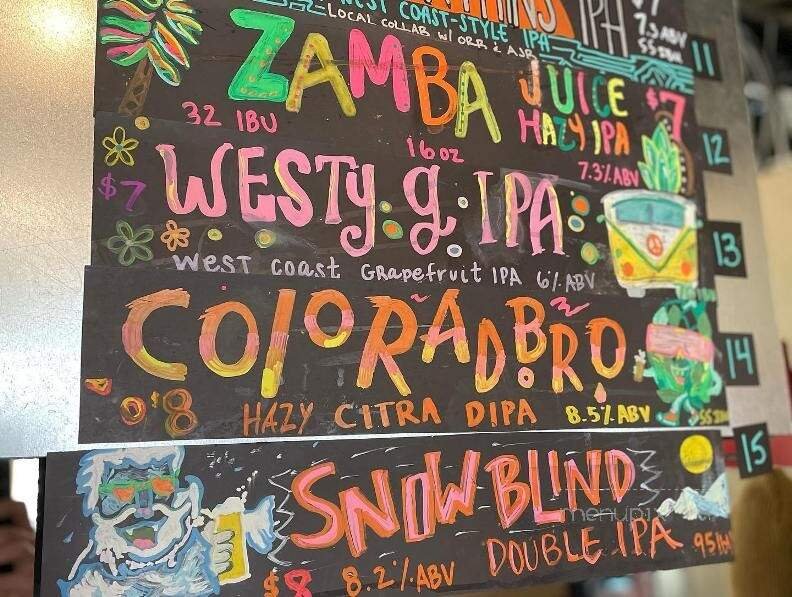 WEST COAST-STYLE IPA
LOCAL COLLAB W/ ORR & AJR
IPA
$7
7.3 ABV
11
ZAMBA JUICE
HAZY IPA
$7
32 IBU
16 oz
7.3% ABV
12
$7
WESTY.g.IPA
WEST COAST GRAPEFRUIT IPA 6% ABV
13
COLORADBRO
$8
HAZY CITRA DIPA
8.5% ABV
14
SNOWBLIND
DOUBLE IPA
$8
8.2% ABV
15